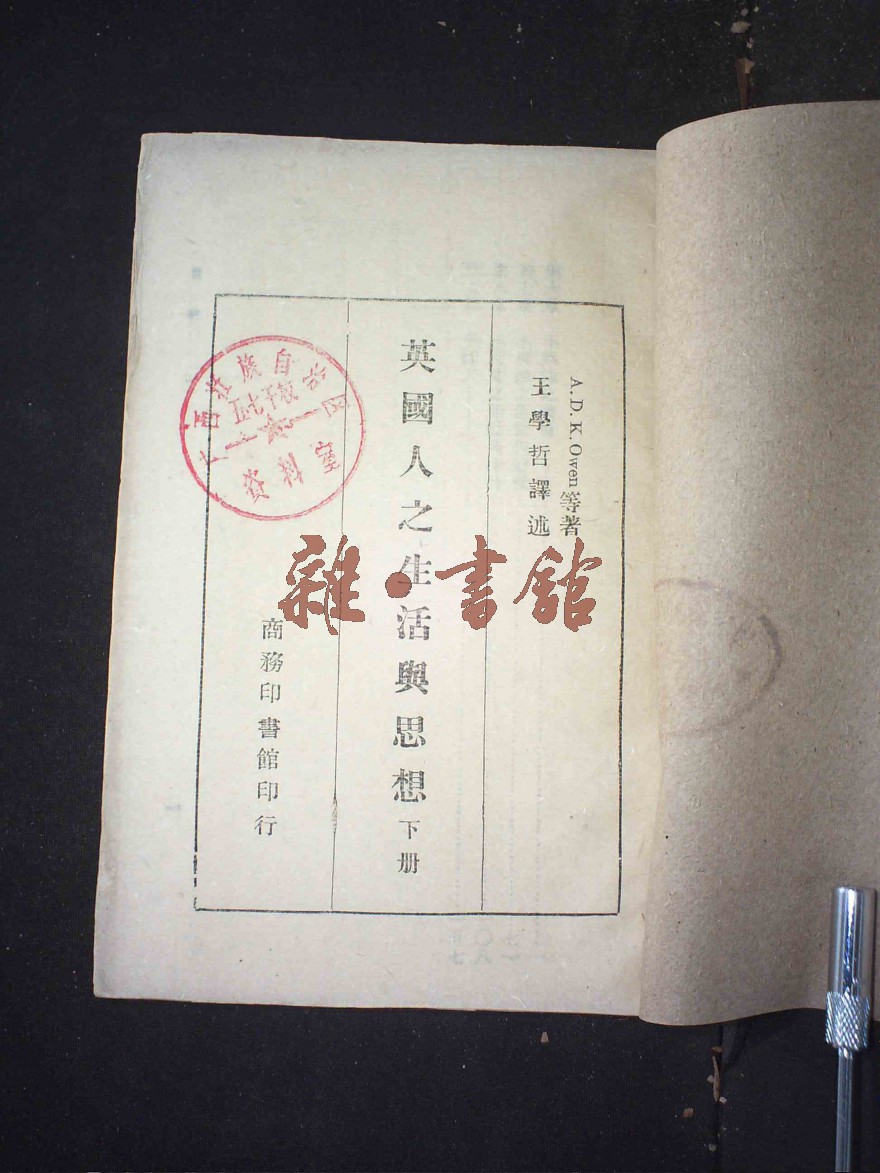 A. D. K. Owen 等著
王學哲譯述
英國人之生活與思想 下册
商務印書館印行
西壯族自治区
五七干校
资料室
雜·書館